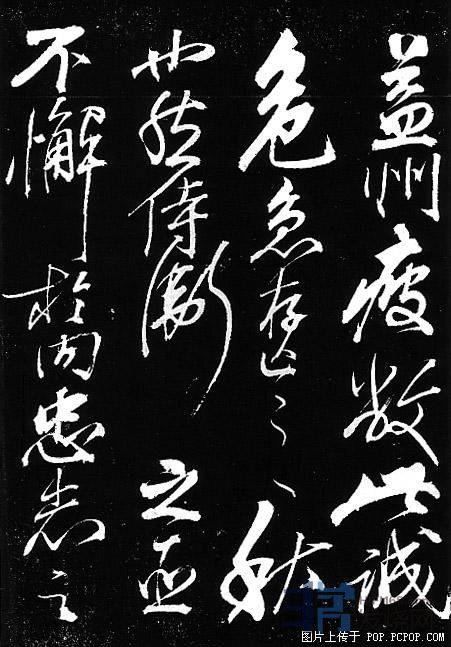 益州疲敝此誠
危急存亡之秋
也然侍衛之臣
不懈於內忠志之
非常
图片上传于 POP.PCPOP.COM